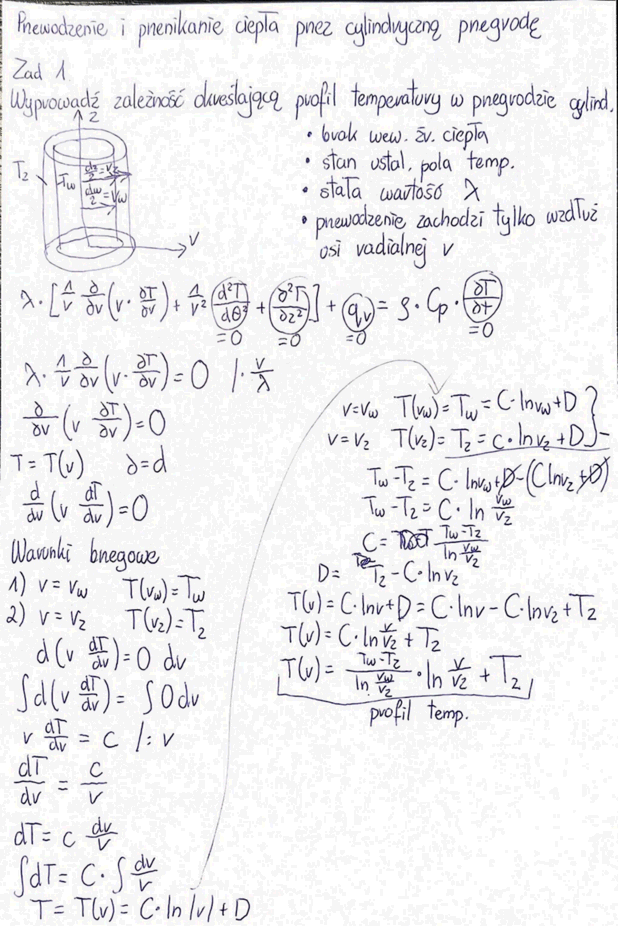 Przewodzenie i przenikanie ciepła przez cylindryczną przegrodę
Zad 1
Wyprowadź zależność określającą profil temperatury w przegrodzie cylind.
z
T_z
T_w
d_z/2 = r_z
d_w/2 = r_w
r
• brak wew. źr. ciepła
• stan ustal. pola temp.
• stała wartość λ
• przewodzenie zachodzi tylko wzdłuż
osi radialnej r
λ·[1/r ∂/∂r (r·∂T/∂r) + 1/r² d²T/dθ² + ∂²T/∂z²] + q_v = ρ·Cp·∂T/∂t
=0 =0 =0 =0
λ·1/r ∂/∂r (r·∂T/∂r) = 0 /·r/λ
∂/∂r (r ∂T/∂r) = 0
T = T(r) ∂=d
d/dr (r dT/dr) = 0
Warunki brzegowe
1) r = r_w T(r_w) = T_w
2) r = r_z T(r_z) = T_z
d(r dT/dr) = 0 dr
∫d(r dT/dr) = ∫0dr
r dT/dr = C /: r
dT/dr = C/r
dT = C dr/r
∫dT = C·∫dr/r
T = T(r) = C·ln|r| + D
r=r_w T(r_w) = T_w = C·lnr_w + D
r=r_z T(r_z) = T_z = C·lnr_z + D } -
T_w - T_z = C·lnr_w + D - (Clnr_z + D)
T_w - T_z = C·ln r_w/r_z
C = (T_w - T_z)/(ln r_w/r_z)
D = T_z - C·lnr_z
T(r) = C·lnr + D = C·lnr - C·lnr_z + T_z
T(r) = C·ln r/r_z + T_z
T(r) = (T_w - T_z)/(ln r_w/r_z) · ln r/r_z + T_z
profil temp.